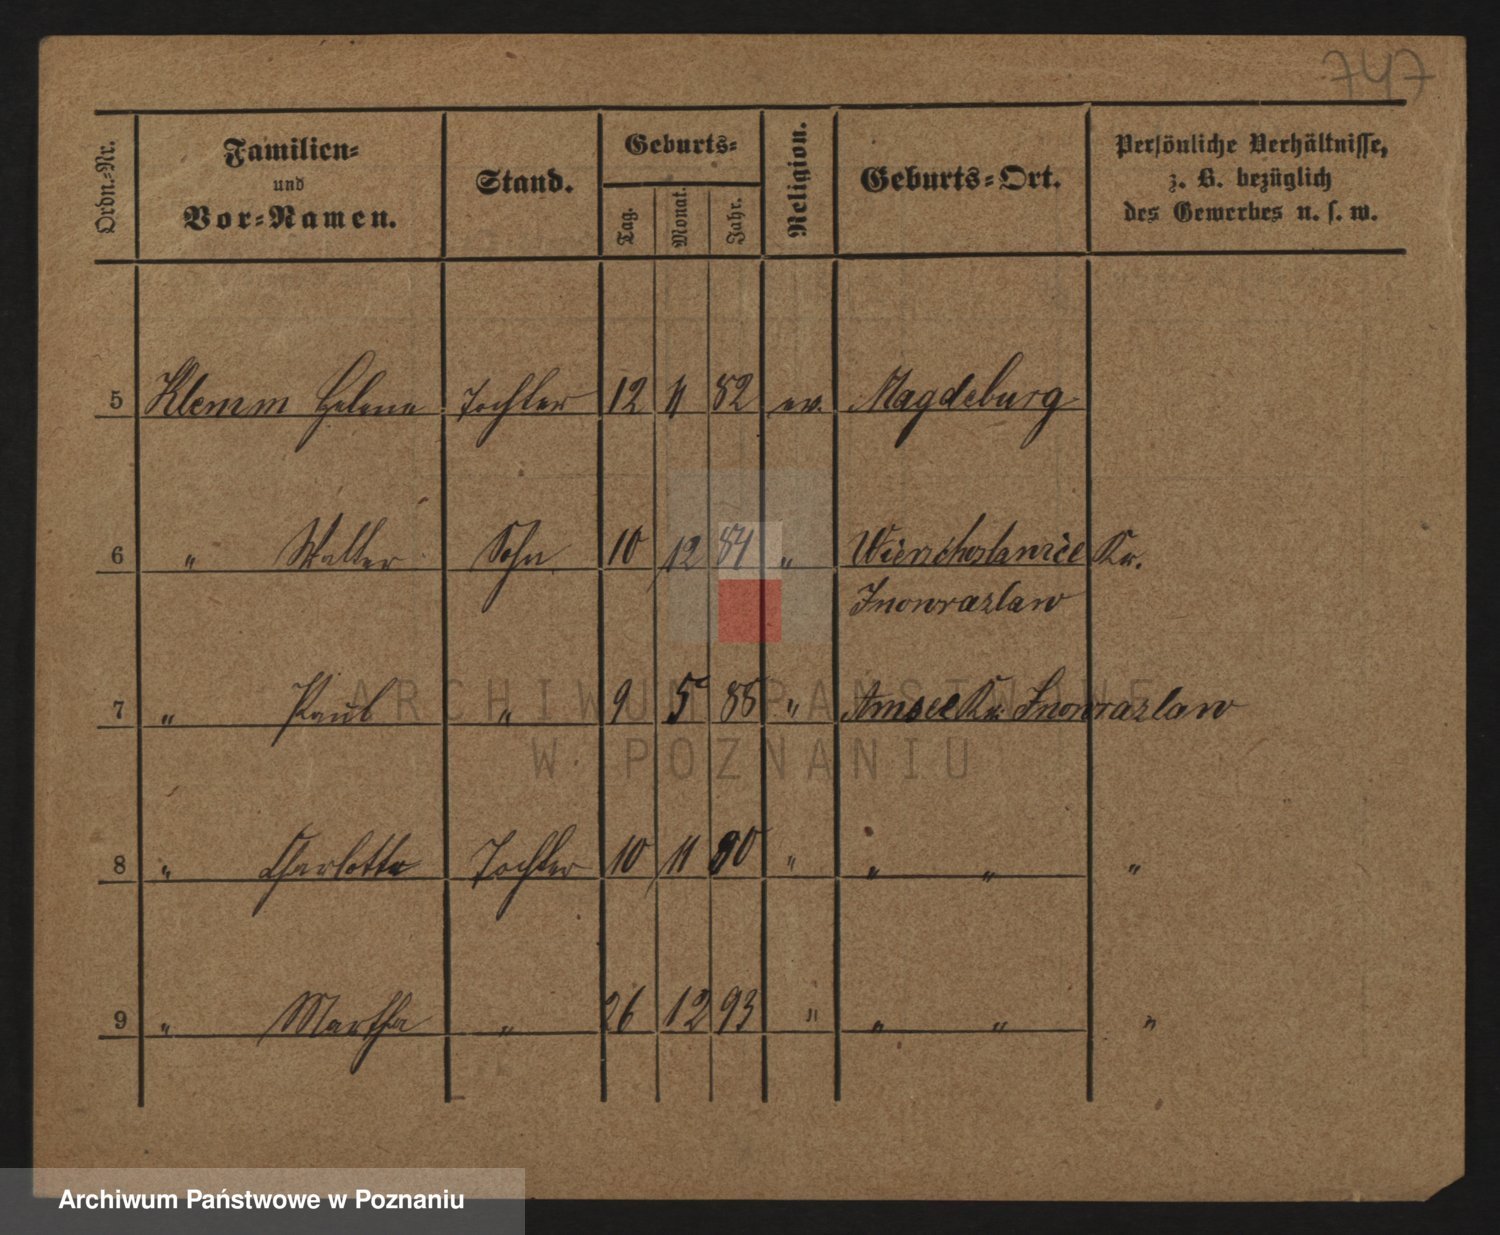 747
Ordn.-Nr.
Familien-
und
Vor-Namen.
Stand.
Geburts-
Tag.
Monat.
Jahr.
Religion.
Geburts-Ort.
Persönliche Verhältnisse,
z. B. bezüglich
des Gewerbes u. s. w.
5 Klemm Helene Tochter 12 11 82 ev. Magdeburg
6 " Walter Sohn 10 12 84 " Kr.
Inowrazlaw
7 " Paul " 9 5 88 " Amsee Kr. Inowrazlaw
8 " Charlotte Tochter 10 11 90 " " " "
9 " Martha " 26 12 93 " " " "
ARCHIWUM PAŃSTWOWE
W POZNANIU
Archiwum Państwowe w Poznaniu